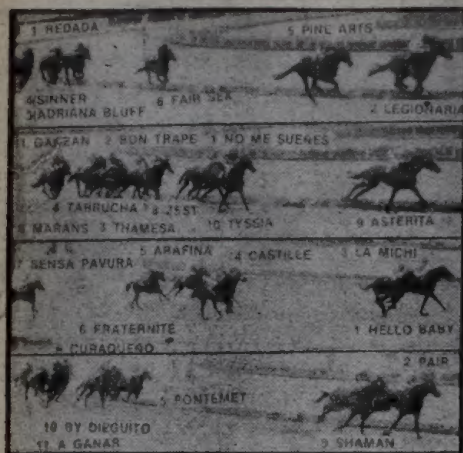 1 REDADA 5 PINE ARTS
4 SINNER 6 FAIR SEA
3 ADRIANA BLUFF 2 LEGIONARIA
1 GARZAN 2 BON TRAPE 1 NO ME SUENES
4 TARRUCHA 8 ZEST
8 MARANS 3 THAMESA 10 TYSSIA 9 ASTERITA
5 ARAFINA 4 CASTILLE 3 LA MICHI
7 SENSA PAVURA
6 FRATERNITE 1 HELLO BABY
CURAQUEÑO
2 PAIR
5 PONTEMET
10 BY DIEGUITO
11 A GANAR 9 SHAMAN